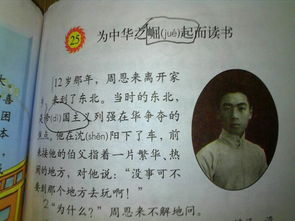 25 为中华之崛(jué)起而读书
12岁那年，周恩来离开家
来到了东北。当时的东北，
是帝(dì)国主义列强在华争夺的
焦点。他在沈(shěn)阳下了车，前
来接他的伯父指着一片繁华、热
闹的地方，对他说：“没事可不
要到那个地方去玩啊！”
“为什么？”周恩来不解地问。